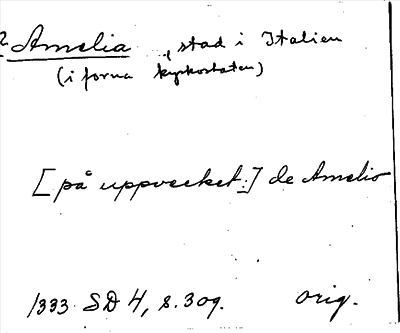 ? Amelia, stad i Italien
(i forna kyrkostaten)
[på uppvecket:] de Amelio
1333 SD 4, s. 309. orig.